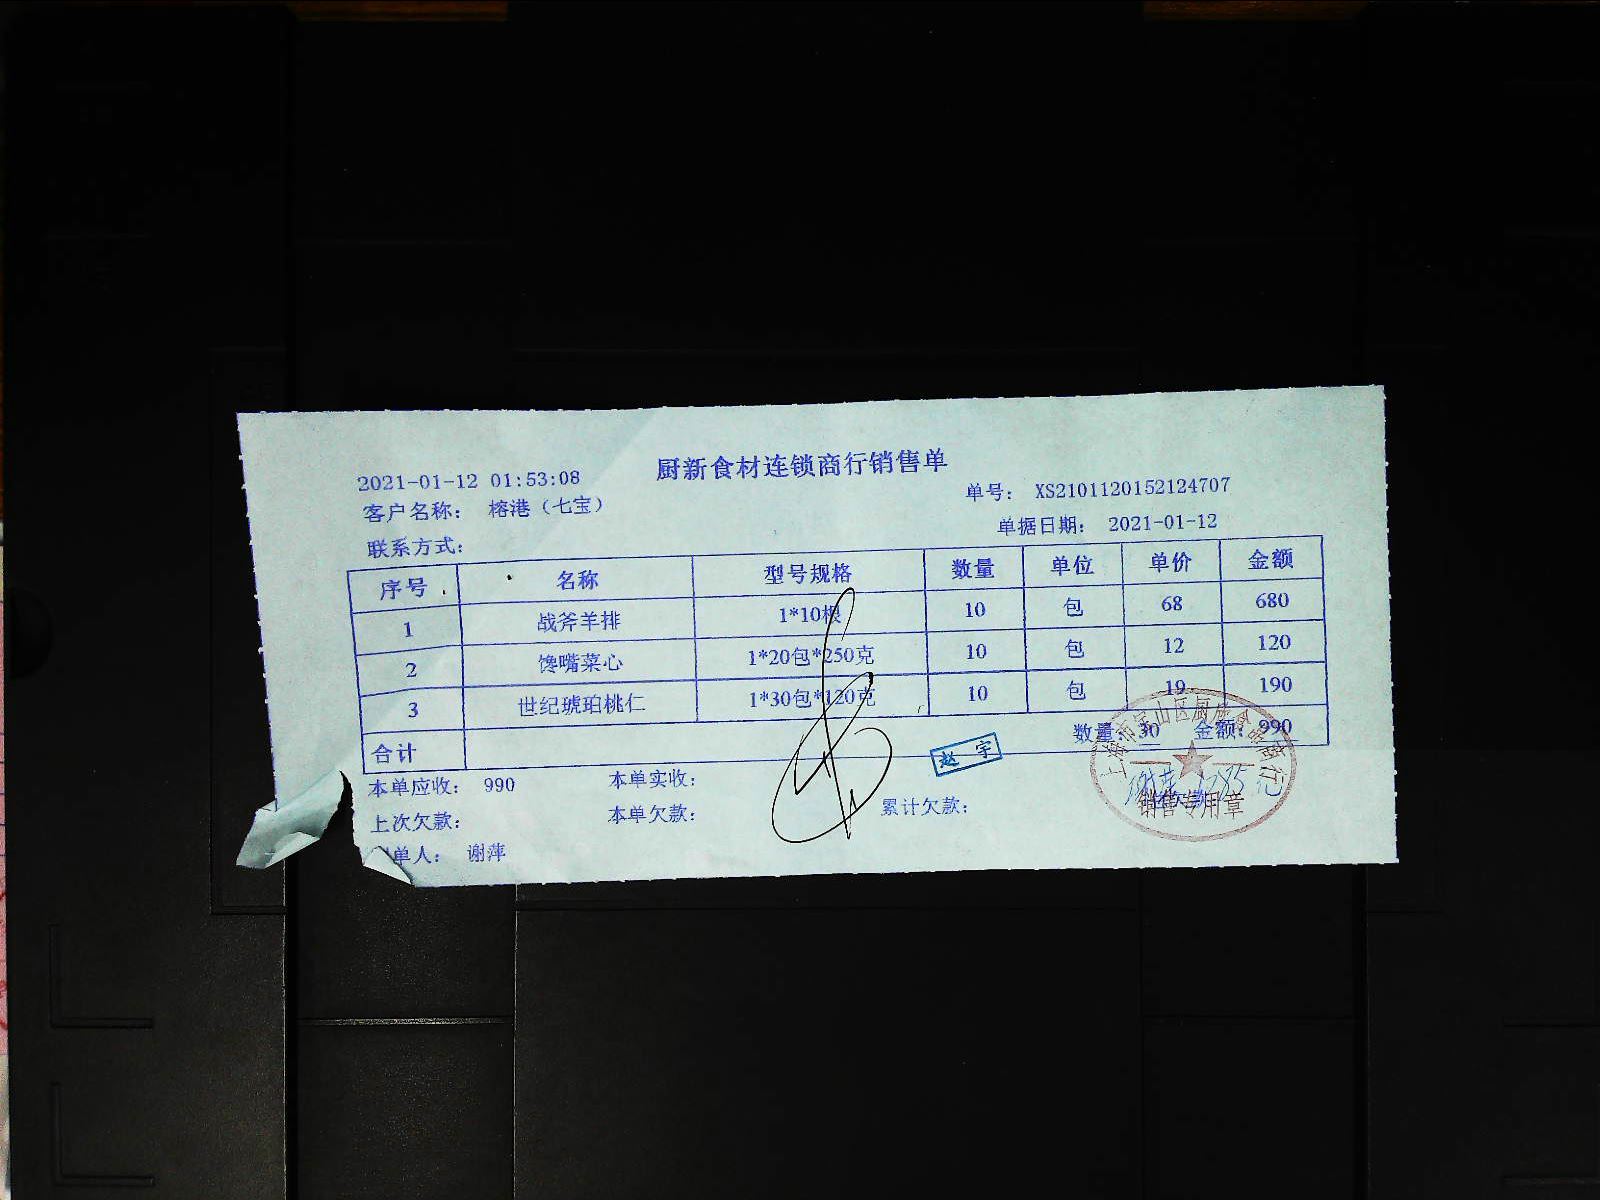 厨新食材连锁商行销售单
2021-01-12 01:53:08
单号: XS2101120152124707
客户名称: 榕港（七宝）
单据日期: 2021-01-12
联系方式:
序号 名称 型号规格 数量 单位 单价 金额
1 战斧羊排 1*10根 10 包 68 680
2 馋嘴菜心 1*20包*250克 10 包 12 120
3 世纪琥珀桃仁 1*30包*120克 10 包 19 190
合计 数量: 30 金额: 990
本单应收: 990 本单实收:
上次欠款: 本单欠款: 累计欠款:
单人: 谢萍
赵宇
上海市宝山区厨 食品商行
销售专用章